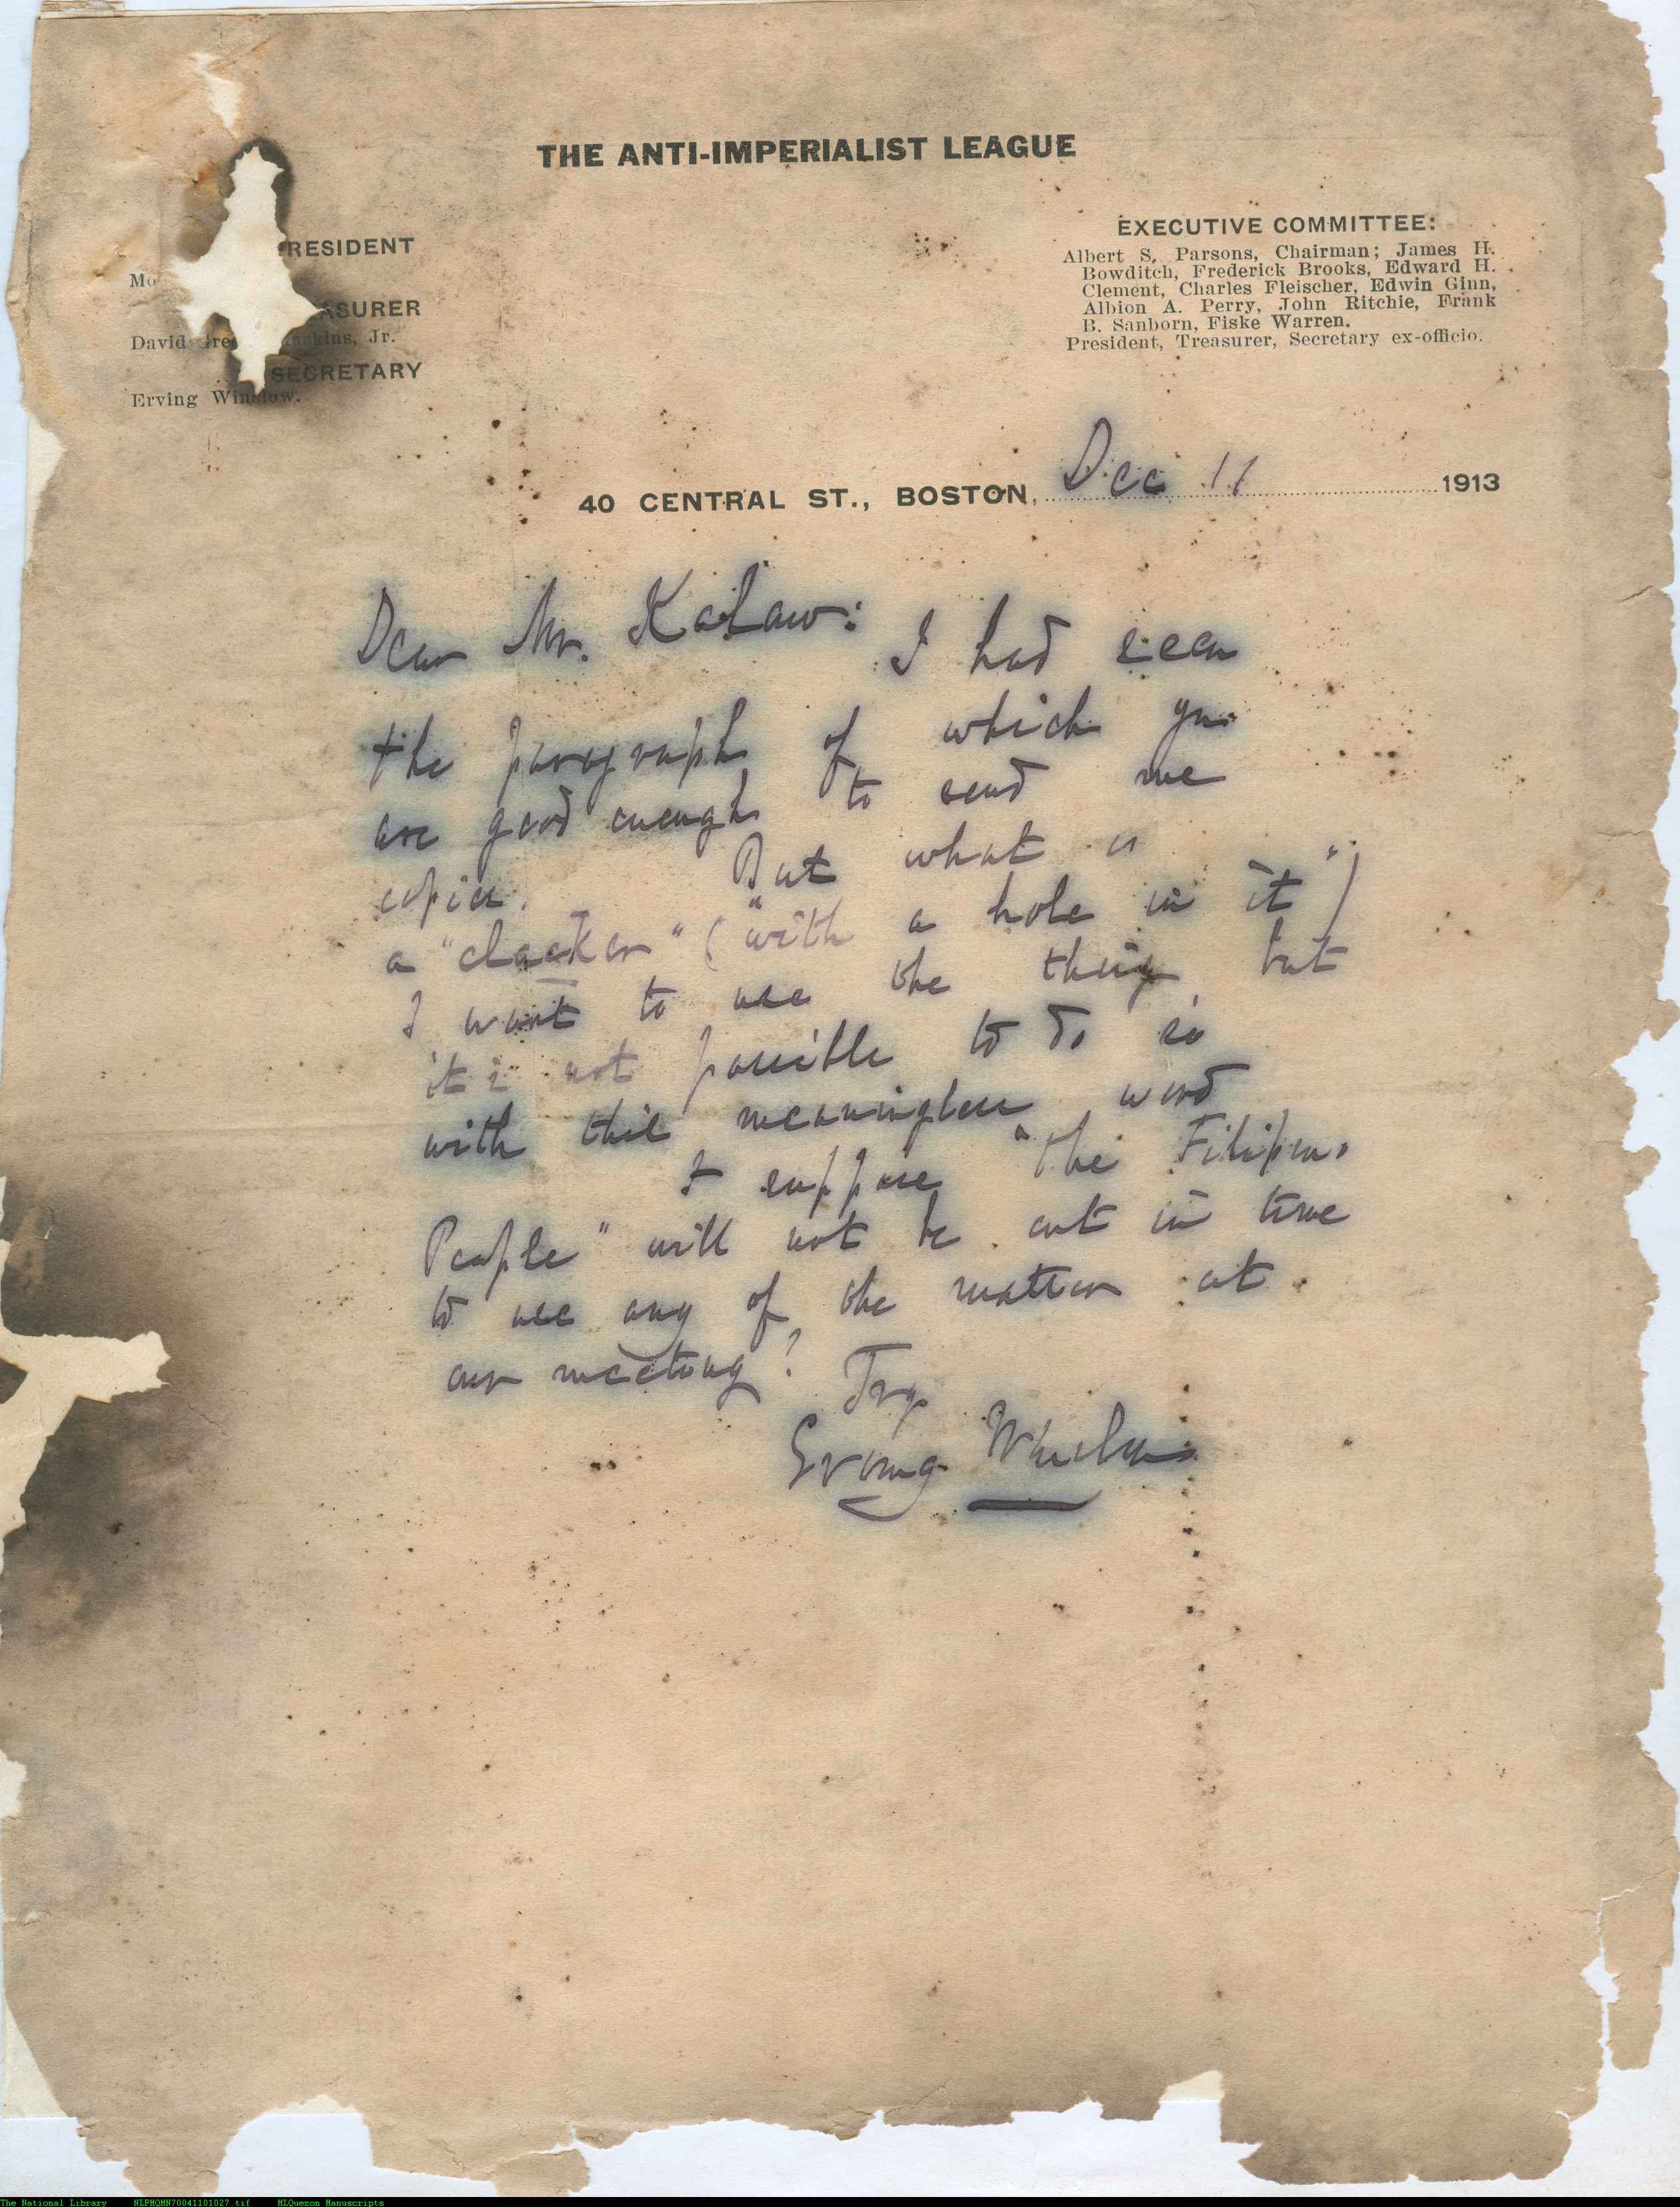 THE ANTI-IMPERIALIST LEAGUE
RESIDENT
Mo
ASURER
David Gree askins, Jr.
SECRETARY
Erving Winslow.
EXECUTIVE COMMITTEE:
Albert S. Parsons, Chairman; James H.
Bowditch, Frederick Brooks, Edward H.
Clement, Charles Fleischer, Edwin Ginn,
Albion A. Perry, John Ritchie, Frank
B. Sanborn, Fiske Warren.
President, Treasurer, Secretary ex-officio.
40 CENTRAL ST., BOSTON, Dec 11 1913
Dear Mr. Kalaw: I had seen
the paragraph of which you
are good enough to send me
copies. But what is
a "clacker" ("with a hole in it")
I want to use the thing but
it is not possible to do so
with this meaningless word
I suppose "the Filipino
People" will not be out in time
to use any of the matter at
our meeting?
Erving Winslow
The National Library NLPMQMN70041101027.tif MLQuezon Manuscripts